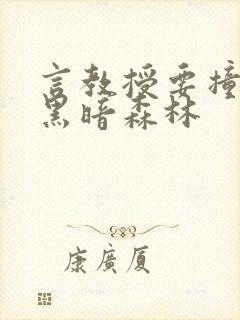 言教授要撞
黑暗森林
康廣厦